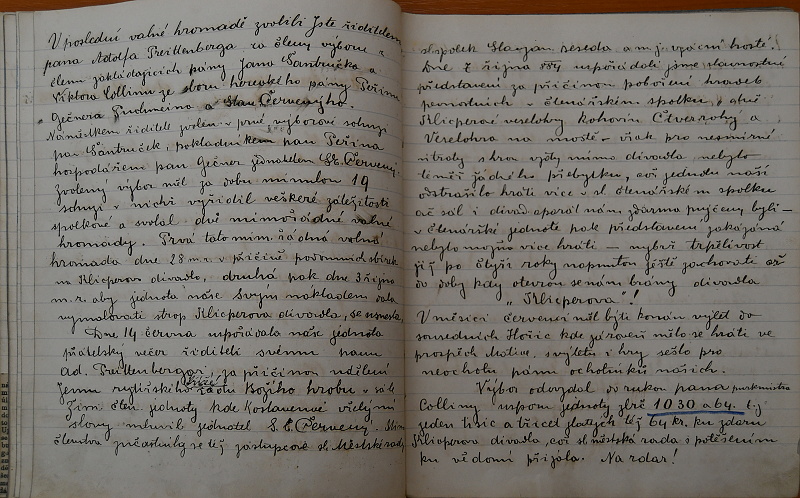 V poslední valné hromadě zvolili jste ředitelem
pana Adolfa Preittenberga za členy výboru z
členů zakládajících pány Jana Šantrůčka a
Viktora Collinu ze sboru hereckého pány Peřinu
Gečnera Puchmeina a Stan. Červeného.
Náměstkem řediteli zvolen v prvé výborové schůzi
pan Šantrůček, pokladníkem pan Peřina
hospodářem pan Gečner jednatelem St. Červený.
Zvolený výbor měl za dobu minulou 19
schůzí v nichž vyřídil veškeré záležitosti
spolkové a svolal dvě mimořádné valné
hromady. Prvá tato mimořádná valná
hromada dne 28 m. r. v příčině podomních sbírek
na Klicperovo divadlo, druhá pak dne 3 října
m. r. aby jednota naše svým nákladem dala
vymalovati strop Klicperova divadla, se usnesla.
Dne 14 června uspořádala naše jednota
přátelský večer řediteli svému panu
Ad. Preittenbergovi, za příčinou udělení
jemu rytířského řádu Božího hrobu v sále
Zimi člen jednoty kde Koslavenci vřelými
slovy mluvil jednatel S. E. Červený.
členstva zúčastnily se též zástupcové sl. Městské rady
sl. spolek Slavjan, beseda a m. j. vzácní hosté.
Dne 7 října 884 uspořádali jsme slavnostní
představení za příčinou pobořeni hradeb
pevnostních v čtenářském spolku, a dně
Klicperové veselohry Kohovin Čtverrohý a
Veselohra na mostě – však pro nesmírné
útraty s hrou vždy mimo divadlo nebylo
téměř žádného přebytku, což jednotu naší
odstrašilo hráti více v sl. čtenářském spolku
ač sál i divad. aparát nám zdarma půjčeny byli –
v Čtenářské jednotě pak představení zakázána
nebylo možno více hráti – nybrž trpělivost
již po čtyři roky napnutou ještě zachovati až
do doby kdy otevrou se nám brány divadla
„Klicperova"!
V měsíci červenci měl býti konán výlet do
sousedních Hořic kde zároveň mělo se hráti ve
prospěch Matice. s výletu i hry sešlo pro
neochotu pánů ochotníků našich.
Výbor odevzdal do rukou pana purkmistra
Colliny jménem jednoty zlré 1030 a 64. t. j.
jeden tisíc a třicet zlatých též 64 kr. ku zdaru
Klicperova divadla, což sl. městská rada s potěšením
ku vědomí přijala. Na zdar!